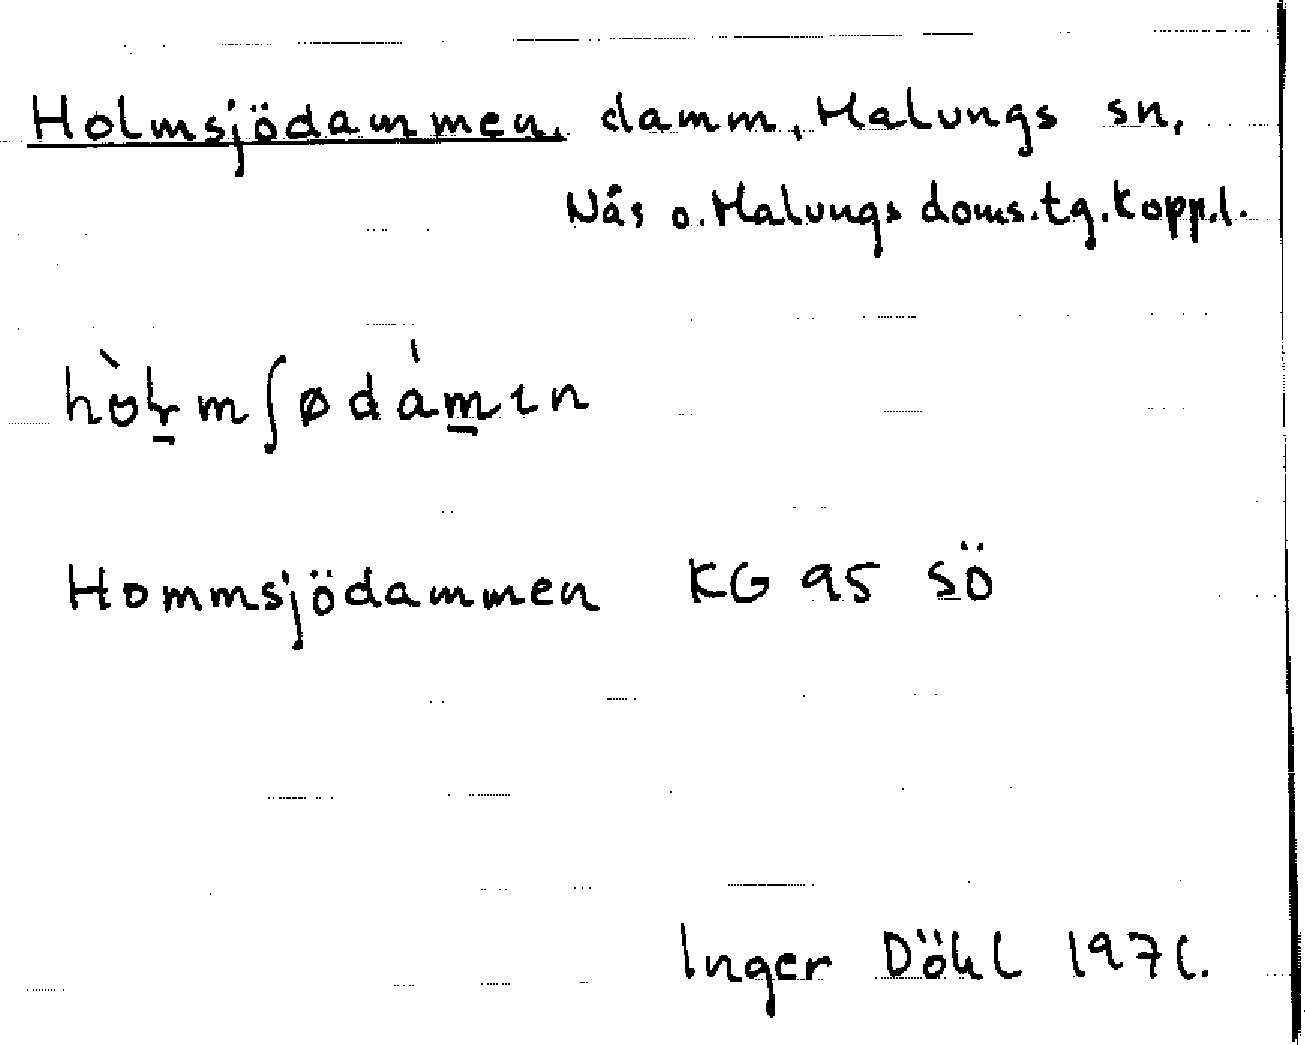 Holmsjödammen, damm, Malungs sn,
Nås o. Malungs doms.tg. Kopp.l.
Hommsjödammen KG 95 SÖ
Inger Döhl 1971.